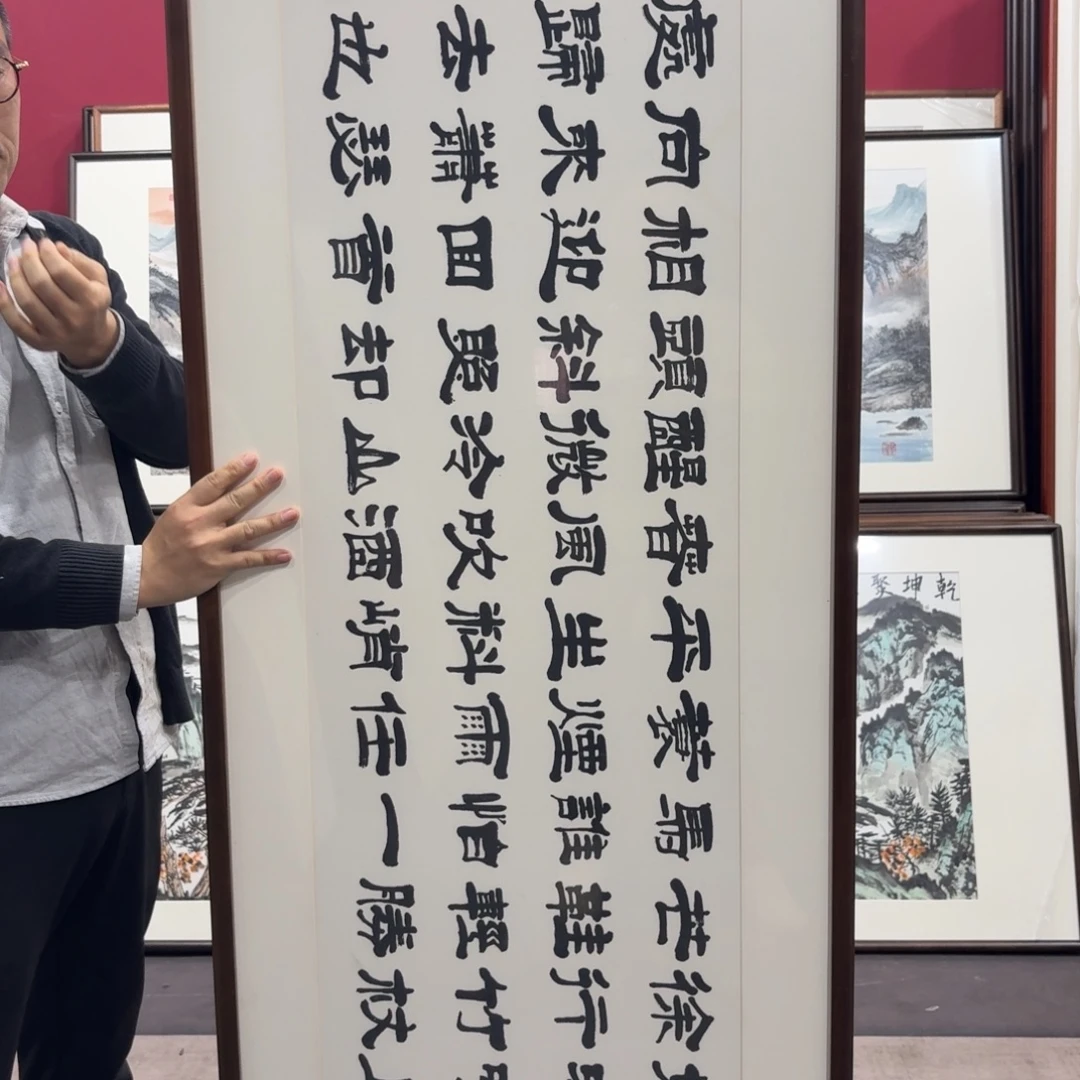 徐行竹杖
芒鞋輕勝
馬誰怕一
蓑煙雨任
平生料峭
春風吹酒
醒微冷山
頭斜照却
相迎回首
向來蕭瑟
處歸去也
乾坤聚